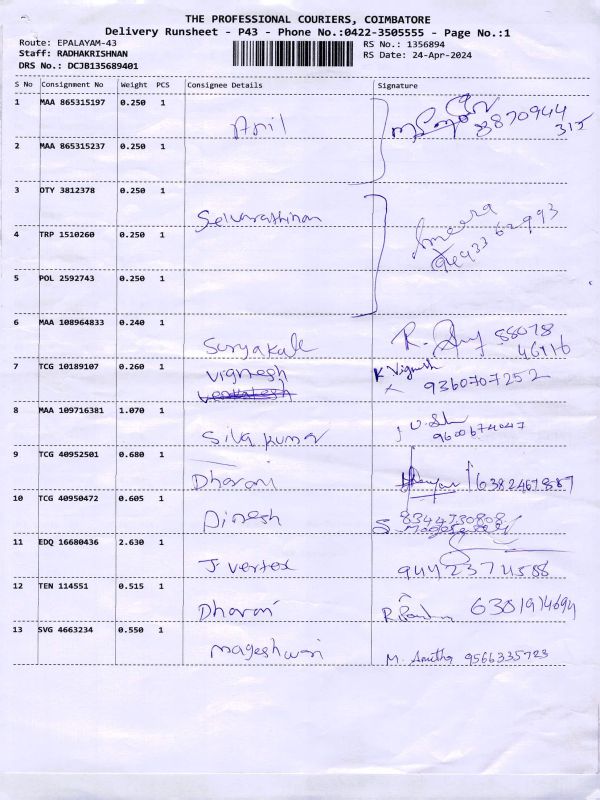 THE PROFESSIONAL COURIERS, COIMBATORE
Delivery Runsheet - P43 - Phone No.:0422-3505555 - Page No.:1
Route: EPALAYAM-43
RS No.: 1356894
Staff: RADHAKRISHNAN
RS Date: 24-Apr-2024
DRS No.: DCJB135689401
S No Consignment No Weight PCS Consignee Details Signature
1 MAA 865315197 0.250 1 Anil 8870944
315
2 MAA 865315237 0.250 1
3 DTY 3812378 0.250 1 Selvarathinam Ameera
4 TRP 1510260 0.250 1
5 POL 2592743 0.250 1
6 MAA 108964833 0.240 1 Suryakala R. 88078
46116
7 TCG 10189107 0.260 1 Vignesh K Vignesh
Venkatesh 9360707252
8 MAA 109716381 1.070 1 Sivakumar
9600674047
9 TCG 40952501 0.680 1 Dharani
10 TCG 40950472 0.605 1 Dinesh 8344730808
11 EDQ 16680436 2.630 1 J vertex 9442374588
12 TEN 114551 0.515 1 Dharani
13 SVG 4663234 0.550 1 Mageshwari M. Amitha 9566335723